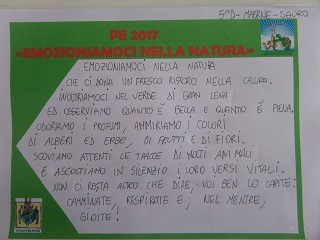 5^D - MARINE - SAURO
PE 2017
«EMOZIONIAMOCI NELLA NATURA»
EMOZIONIAMOCI NELLA NATURA
CHE CI DONA UN FRESCO RISTORO NELLA CALURA.
INOLTRIAMOCI NEL VERDE DI GRAN LENA
ED OSSERVIAMO QUANTO È BELLA E QUANTO È PIENA.
ODORIAMO I PROFUMI, AMMIRIAMO I COLORI
DI ALBERI ED ERBE, DI FRUTTI E DI FIORI.
SCOVIAMO ATTENTI LE TRACCE DI MOLTI ANIMALI
E ASCOLTIAMO IN SILENZIO I LORO VERSI VITALI.
NON CI RESTA ALTRO CHE DIRE, VOI BEN LO CAPITE:
CAMMINATE, RESPIRATE E, NEL MENTRE,
GIOITE!